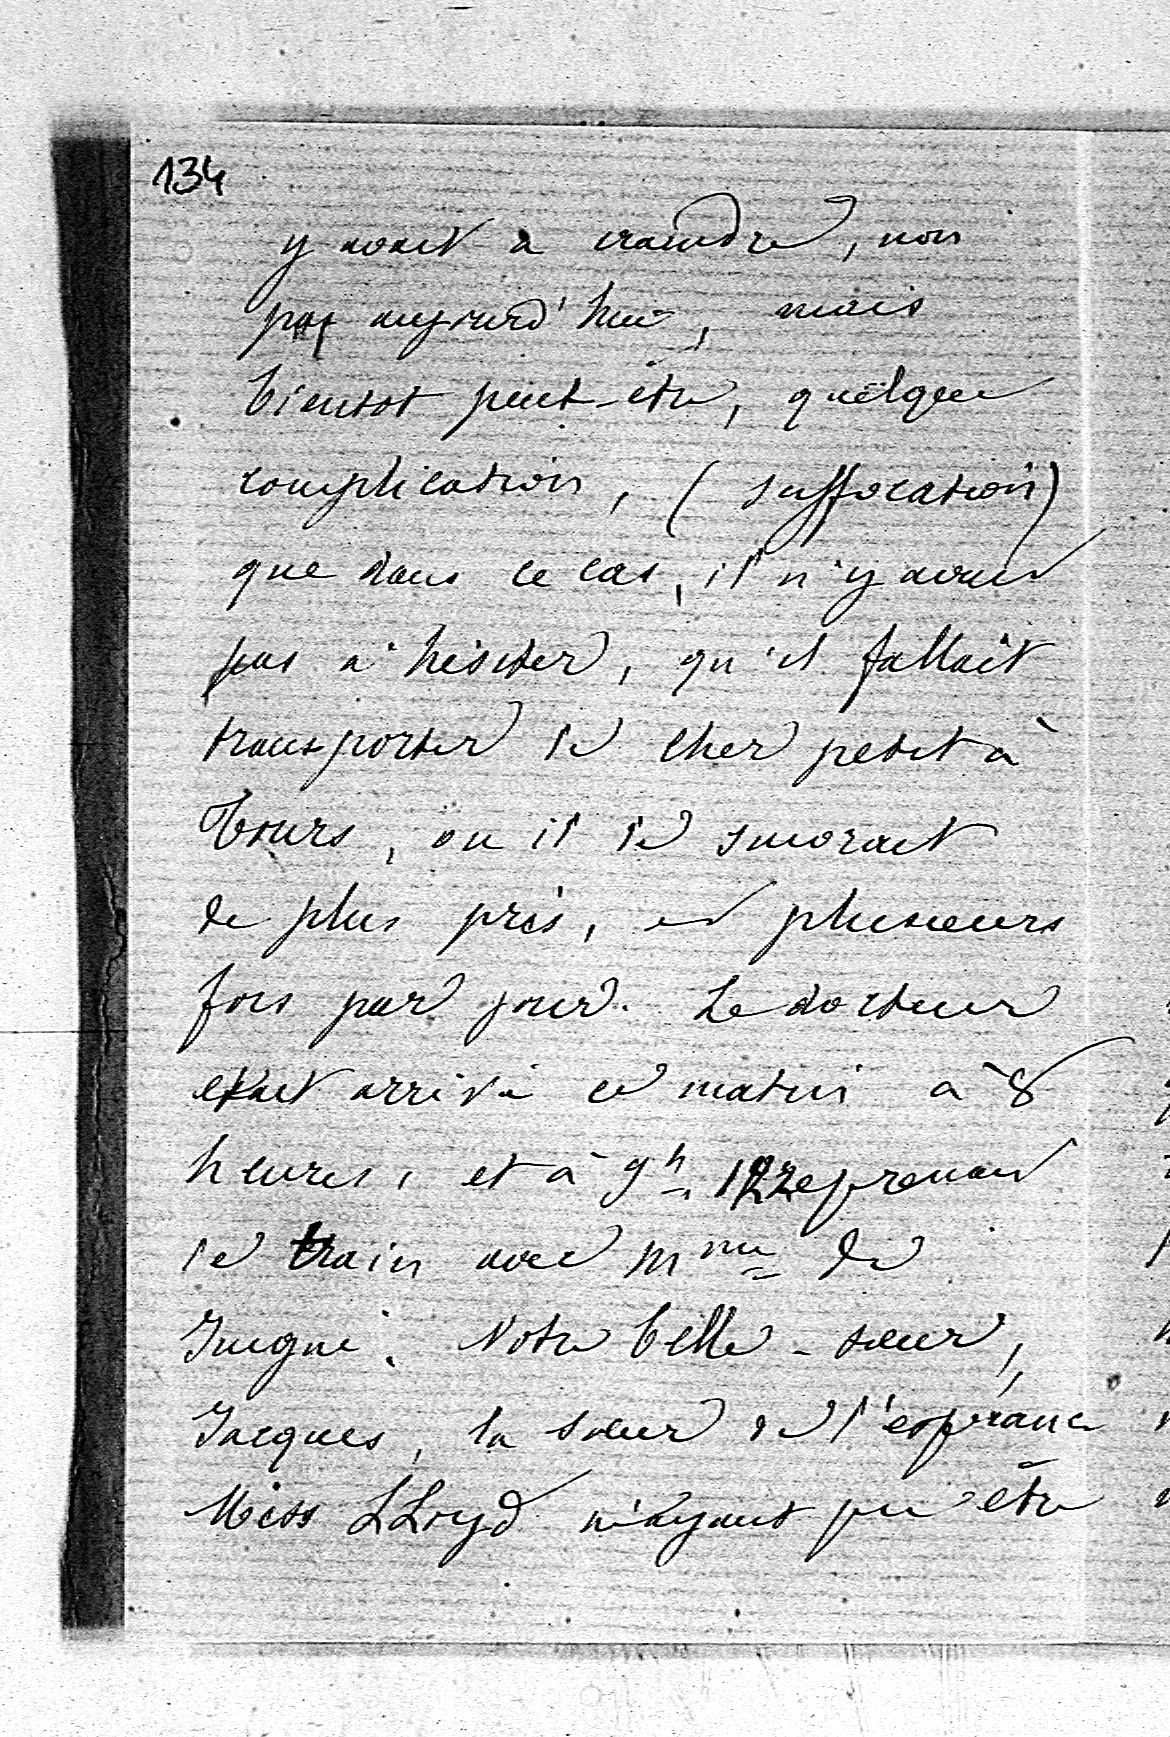 134
y avait à craindre, non
pas aujourd'hui, mais
bientot peut-être, quelque
complication, (suffocation)
que dans ce cas, il n'y avait
pas à hésiter, qu'il fallait
transporter le cher petit à
Tours, ou il le suivrait
de plus près, et plusieurs
fois par jour. Le docteur
était arrivé ce matin à 8
heures, et à 9h. 1/2 reprenait
le train avec Mme de
Juigné. Notre belle-sœur,
Jacques, la sœur de l'espérance
Miss LLoyd n'ayant pu être